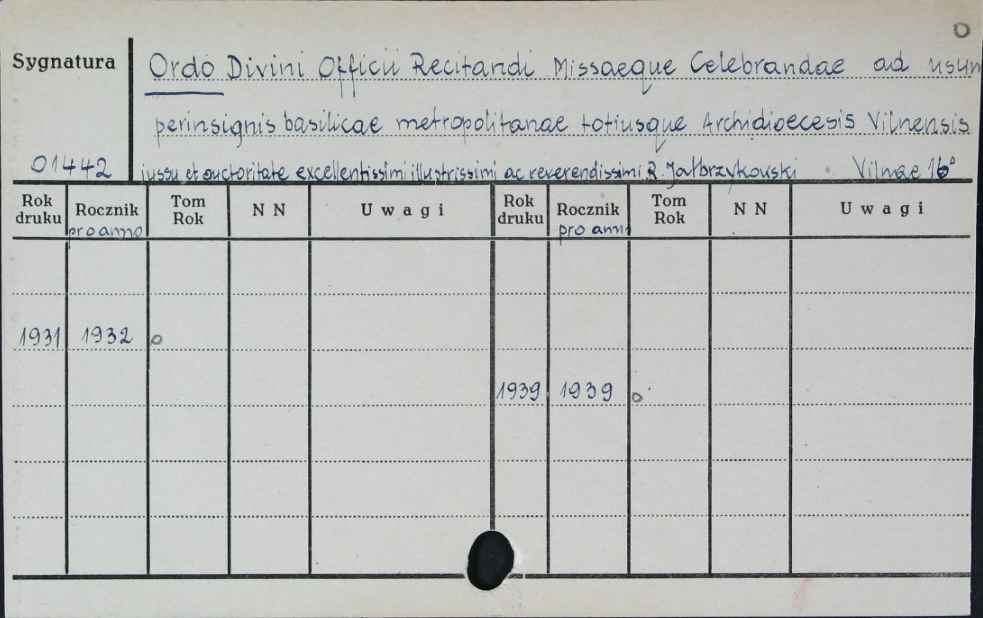 O
Sygnatura
Ordo Divini Officii Recitandi Missaeque Celebrandae ad usum
perinsignis basilicae metropolitanae totiusque Archidioecesis Vilnensis
01442
jussu et auctoritate excellentissimi illustrissimi ac reverendissimi R. Jałbrzykowski . Vilnae 16°
Rok druku Rocznik pro anno Tom Rok N N Uwagi Rok druku Rocznik pro anno Tom Rok N N Uwagi
1931 1932 o
1939 1939 o